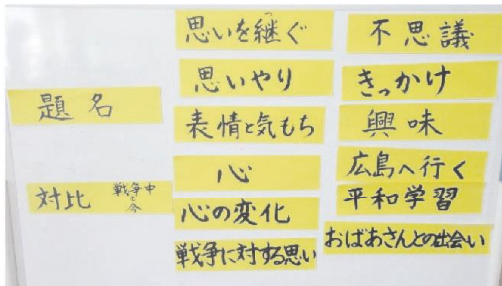 題名
対比 戦争中と今
思いを継ぐ
思いやり
表情と気もち
心
心の変化
戦争に対する思い
不思議
きっかけ
興味
広島へ行く
平和学習
おばあさんとの出会い